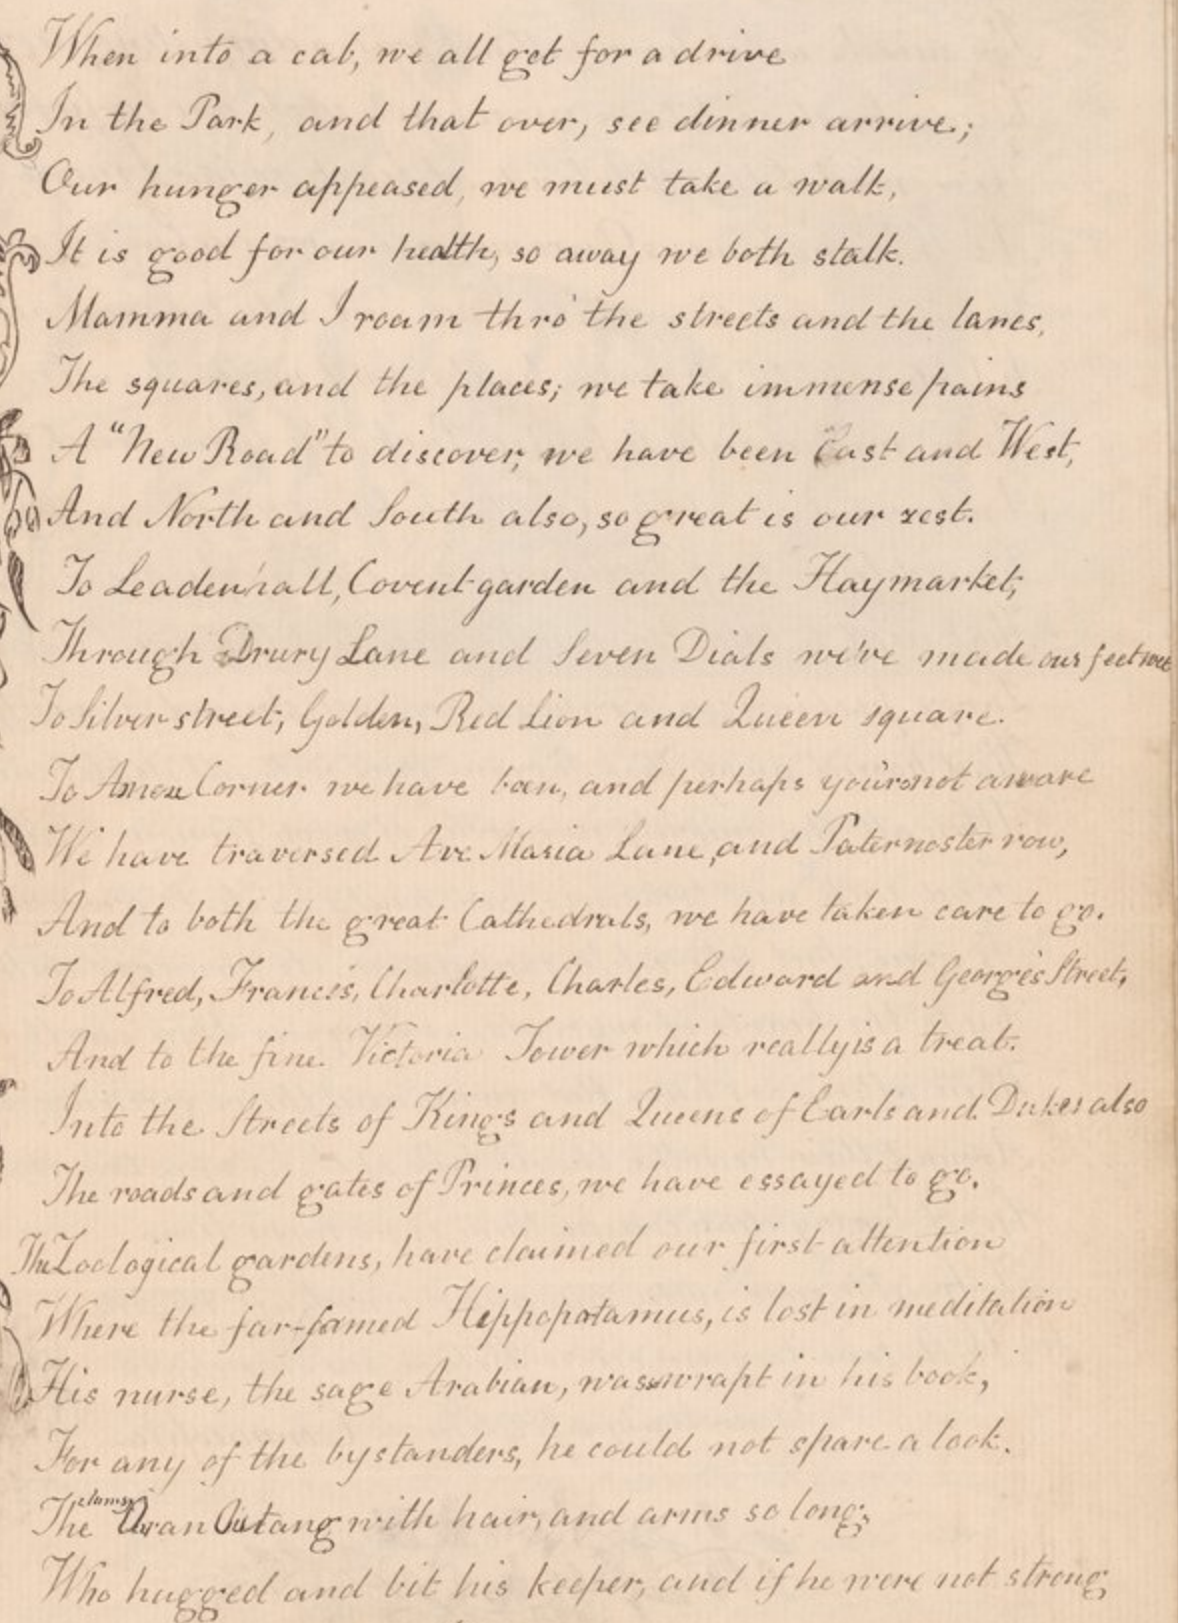 When into a cab, we all get for a drive
In the Park, and that over, see dinner arrive;
Our hunger appeased, we must take a walk,
It is good for our health, so away we both stalk.
Mamma and I roam thro' the streets and the lanes,
The squares, and the places; we take immense pains
A "New Road" to discover, we have been East and West,
And North and South also, so great is our zest.
To Leadenhall, Covent garden and the Haymarket,
Through Drury Lane and Seven Dials we've made our feet
To Silver street, Golden, Red Lion and Queen square.
To Amen Corner we have been, and perhaps you're not aware
We have traversed Ave Maria Lane, and Paternoster row,
And to both the great Cathedrals, we have taken care to go.
To Alfred, Francis, Charlotte, Charles, Edward and George's Street,
And to the fine Victoria Tower which really is a treat.
Into the Streets of Kings and Queens of Earls and Dukes also
The roads and gates of Princes, we have essayed to go.
The Zoological gardens, have claimed our first attention
Where the far-famed Hippopotamus, is lost in meditation
His nurse, the sage Arabian, was wrapt in his book,
For any of the bystanders, he could not spare a look.
The clumsy Oran Outang with hair, and arms so long,
Who hugged and bit his keeper, and if he were not strong